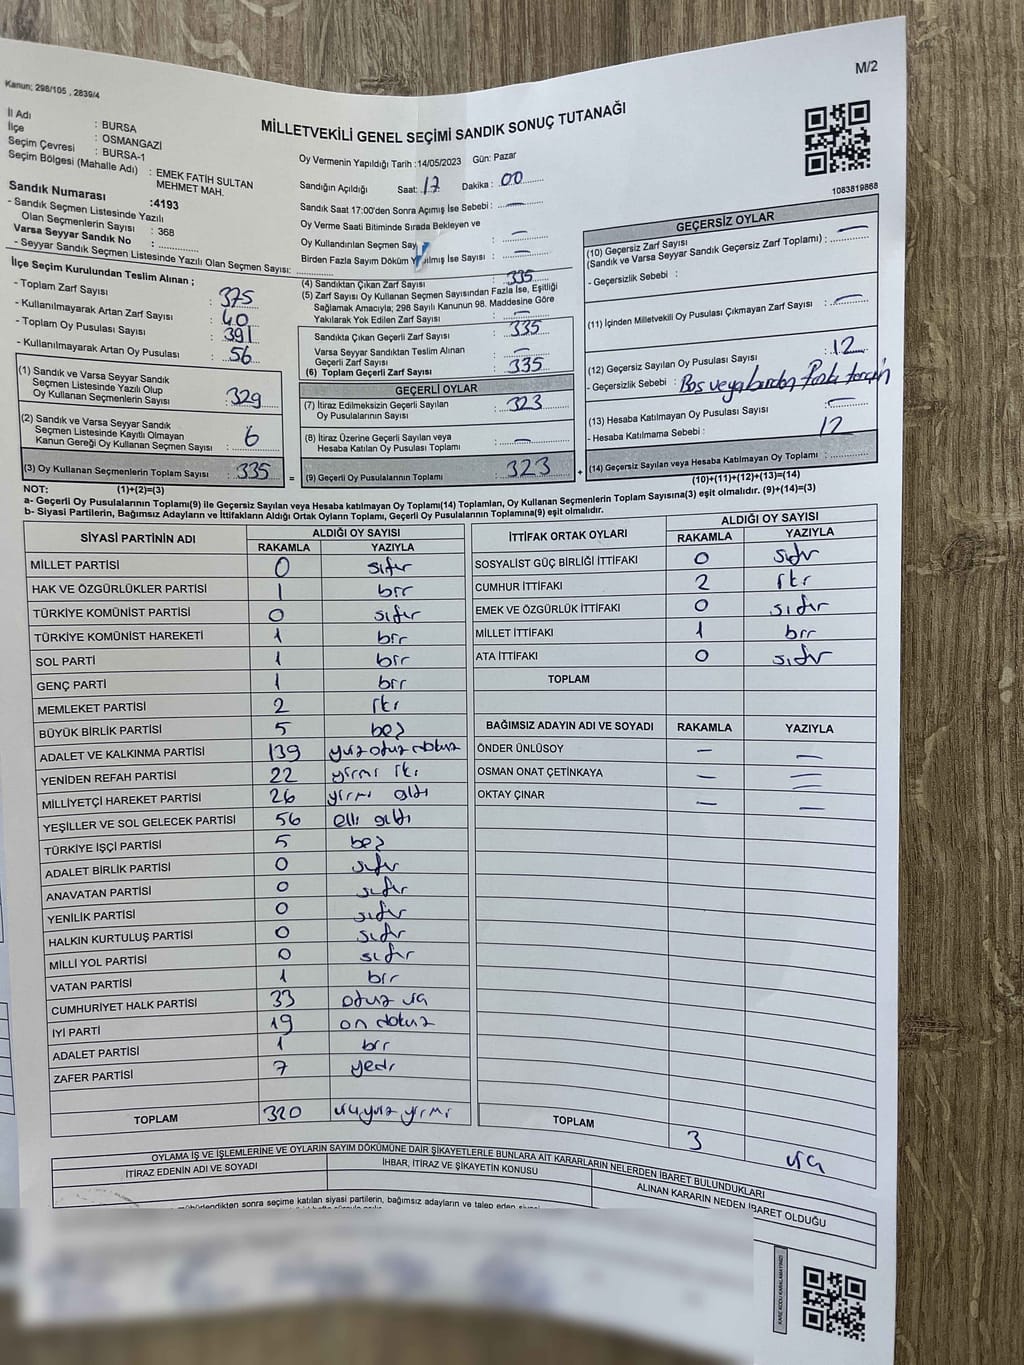 Kanun; 298/105 , 2839/4
M/2
MİLLETVEKİLİ GENEL SEÇİMİ SANDIK SONUÇ TUTANAĞI
İl Adı : BURSA
İlçe : OSMANGAZİ
Seçim Çevresi : BURSA-1
Seçim Bölgesi (Mahalle Adı) : EMEK FATİH SULTAN
MEHMET MAH.
Sandık Numarası :4193
- Sandık Seçmen Listesinde Yazılı
Olan Seçmenlerin Sayısı : 368
Varsa Seyyar Sandık No :
- Seyyar Sandık Seçmen Listesinde Yazılı Olan Seçmen Sayısı:
İlçe Seçim Kurulundan Teslim Alınan ;
- Toplam Zarf Sayısı : 375
- Kullanılmayarak Artan Zarf Sayısı : 40
- Toplam Oy Pusulası Sayısı : 391
- Kullanılmayarak Artan Oy Pusulası : 56
(1) Sandık ve Varsa Seyyar Sandık
Seçmen Listesinde Yazılı Olup
Oy Kullanan Seçmenlerin Sayısı : 329
(2) Sandık ve Varsa Seyyar Sandık
Seçmen Listesinde Kayıtlı Olmayan
Kanun Gereği Oy Kullanan Seçmen Sayısı : 6
(3) Oy Kullanan Seçmenlerin Toplam Sayısı : 335
(1)+(2)=(3)
Oy Vermenin Yapıldığı Tarih :14/05/2023 Gün: Pazar
Sandığın Açıldığı Saat: 17 Dakika : 00
Sandık Saat 17:00'den Sonra Açılmış İse Sebebi : —
Oy Verme Saati Bitiminde Sırada Bekleyen ve
Oy Kullandırılan Seçmen : —
Birden Fazla Sayım Döküm İse Sayısı : —
(4) Sandıktan Çıkan Zarf Sayısı : 335
(5) Zarf Sayısı Oy Kullanan Seçmen Sayısından Fazla İse, Eşitliği
Sağlamak Amacıyla; 298 Sayılı Kanunun 98. Maddesine Göre
Yakılarak Yok Edilen Zarf Sayısı : —
Sandıkta Çıkan Geçerli Zarf Sayısı : 335
Varsa Seyyar Sandıktan Teslim Alınan
Geçerli Zarf Sayısı : —
(6) Toplam Geçerli Zarf Sayısı : 335
GEÇERLİ OYLAR
(7) İtiraz Edilmeksizin Geçerli Sayılan
Oy Pusulalarının Sayısı : 323
(8) İtiraz Üzerine Geçerli Sayılan veya
Hesaba Katılan Oy Pusulası Toplamı : —
= (9) Geçerli Oy Pusulalarının Toplamı : 323 +
1083819868
GEÇERSİZ OYLAR
(10) Geçersiz Zarf Sayısı
(Sandık ve Varsa Seyyar Sandık Geçersiz Zarf Toplamı) : —
- Geçersizlik Sebebi :
(11) İçinden Milletvekili Oy Pusulası Çıkmayan Zarf Sayısı : —
(12) Geçersiz Sayılan Oy Pusulası Sayısı : 12
- Geçersizlik Sebebi : Boş veya birden fazla tercih
(13) Hesaba Katılmayan Oy Pusulası Sayısı : —
- Hesaba Katılmama Sebebi : 12
(14) Geçersiz Sayılan veya Hesaba Katılmayan Oy Toplamı :
(10)+(11)+(12)+(13)=(14)
NOT:
a- Geçerli Oy Pusulalarının Toplamı(9) ile Geçersiz Sayılan veya Hesaba katılmayan Oy Toplamı(14) Toplamları, Oy Kullanan Seçmenlerin Toplam Sayısına(3) eşit olmalıdır. (9)+(14)=(3)
b- Siyasi Partilerin, Bağımsız Adayların ve İttifakların Aldığı Ortak Oyların Toplamı, Geçerli Oy Pusulalarının Toplamına(9) eşit olmalıdır.
SİYASİ PARTİNİN ADI ALDIĞI OY SAYISI
RAKAMLA YAZIYLA
MİLLET PARTİSİ 0 sıfır
HAK VE ÖZGÜRLÜKLER PARTİSİ 1 bir
TÜRKİYE KOMÜNİST PARTİSİ 0 sıfır
TÜRKİYE KOMÜNİST HAREKETİ 1 bir
SOL PARTİ 1 bir
GENÇ PARTİ 1 bir
MEMLEKET PARTİSİ 2 iki
BÜYÜK BİRLİK PARTİSİ 5 beş
ADALET VE KALKINMA PARTİSİ 139 yüz otuz dokuz
YENİDEN REFAH PARTİSİ 22 yirmi iki
MİLLİYETÇİ HAREKET PARTİSİ 26 yirmi altı
YEŞİLLER VE SOL GELECEK PARTİSİ 56 elli altı
TÜRKİYE İŞÇİ PARTİSİ 5 beş
ADALET BİRLİK PARTİSİ 0 sıfır
ANAVATAN PARTİSİ 0 sıfır
YENİLİK PARTİSİ 0 sıfır
HALKIN KURTULUŞ PARTİSİ 0 sıfır
MİLLİ YOL PARTİSİ 0 sıfır
VATAN PARTİSİ 1 bir
CUMHURİYET HALK PARTİSİ 33 otuz üç
İYİ PARTİ 19 on dokuz
ADALET PARTİSİ 1 bir
ZAFER PARTİSİ 7 yedi
TOPLAM 320 üçyüz yirmi
İTTİFAK ORTAK OYLARI ALDIĞI OY SAYISI
RAKAMLA YAZIYLA
SOSYALİST GÜÇ BİRLİĞİ İTTİFAKI 0 sıfır
CUMHUR İTTİFAKI 2 iki
EMEK VE ÖZGÜRLÜK İTTİFAKI 0 sıfır
MİLLET İTTİFAKI 1 bir
ATA İTTİFAKI 0 sıfır
TOPLAM
BAĞIMSIZ ADAYIN ADI VE SOYADI RAKAMLA YAZIYLA
ÖNDER ÜNLÜSOY — —
OSMAN ONAT ÇETİNKAYA — —
OKTAY ÇINAR — —
TOPLAM 3 üç
OYLAMA İŞ VE İŞLEMLERİNE VE OYLARIN SAYIM DÖKÜMÜNE DAİR ŞİKAYETLERLE BUNLARA AİT KARARLARIN NELERDEN İBARET BULUNDUKLARI
İTİRAZ EDENİN ADI VE SOYADI İHBAR, İTİRAZ VE ŞİKAYETİN KONUSU ALINAN KARARIN NEDEN İBARET OLDUĞU
mühürlendikten sonra seçime katılan siyasi partilerin, bağımsız adayların ve talep eden